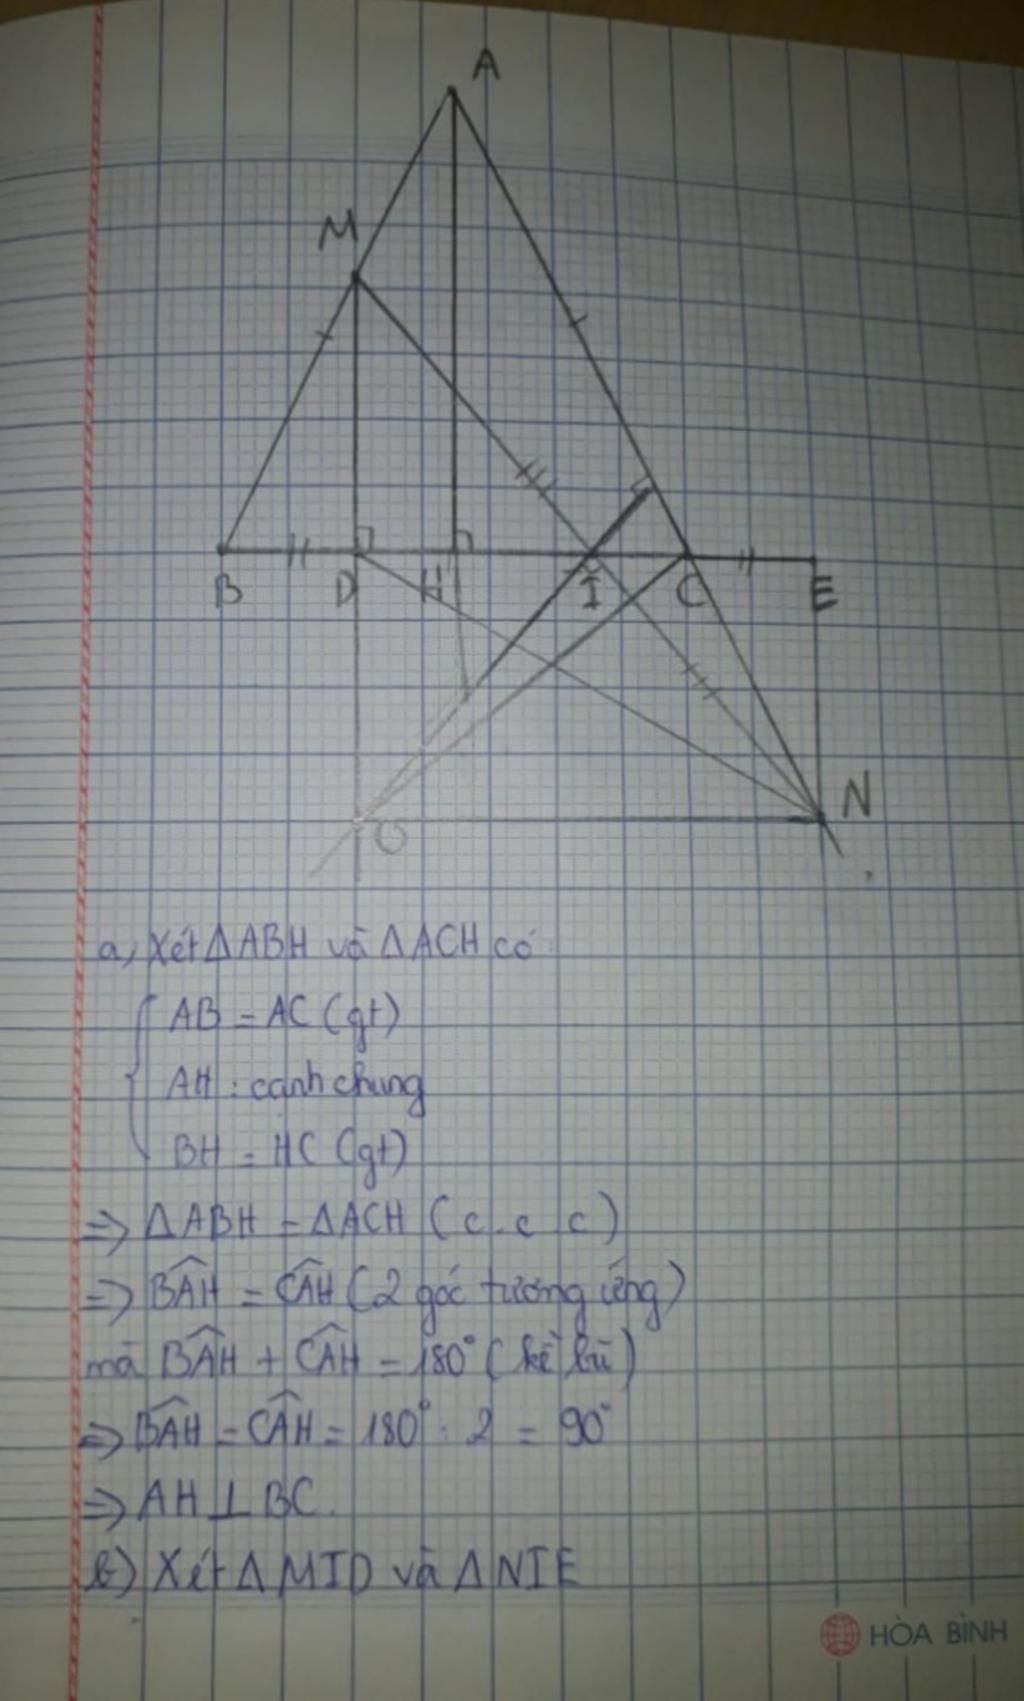 A
M
B D H I C E
N
O
a, Xét ΔABH và ΔACH có
AB = AC (gt)
AH : cạnh chung
BH = HC (gt)
=> ΔABH = ΔACH (c.c.c)
=> BÂH = CÂH (2 góc tương ứng)
mà BÂH + CÂH = 180° (kề bù)
=> BÂH = CÂH = 180° : 2 = 90°
=> AH ⊥ BC.
b) Xét ΔMID và ΔNIE
HÒA BÌNH